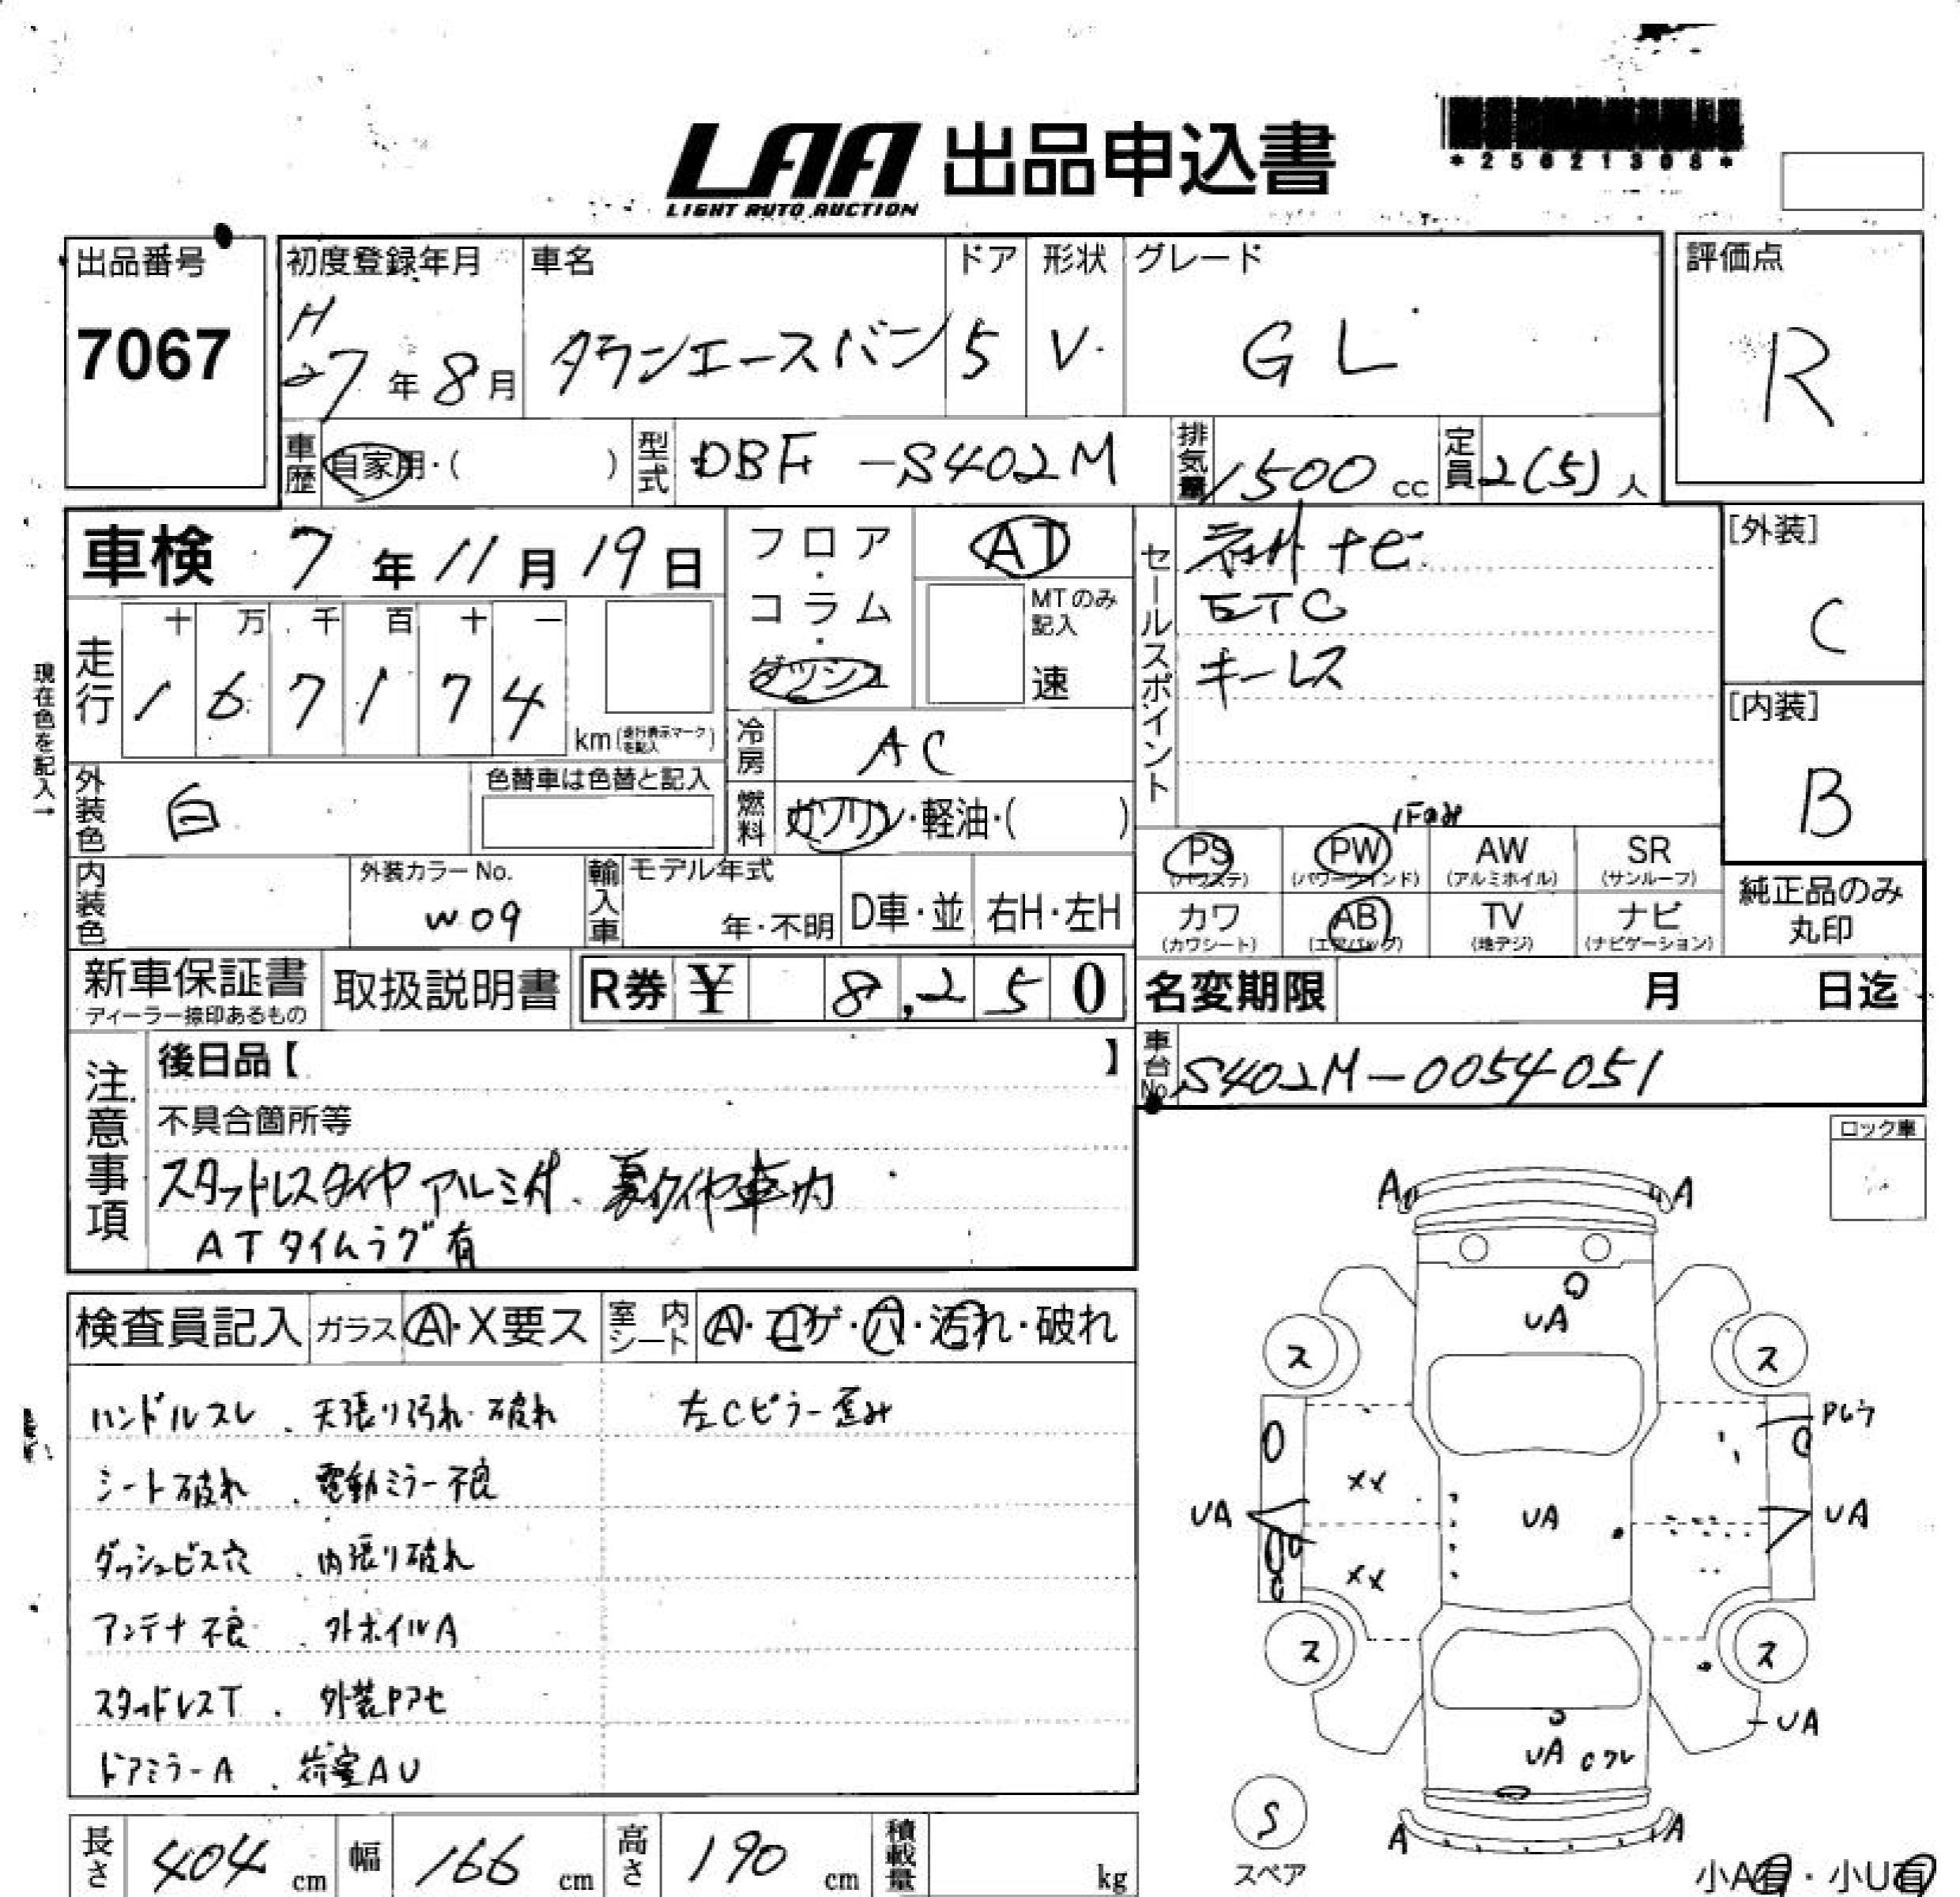 LAA 出品申込書
LIGHT AUTO AUCTION
*25021308*
出品番号
7067
初度登録年月
H
27年8月
車名
タウンエースバン
ドア
5
形状
V
グレード
GL
評価点
R
車歴
自家用・( )
型式
DBF-S402M
排気量
1500cc
定員
2(5)人
車検 7年11月19日
フロア・コラム・ダッシュ
AT
MTのみ記入
速
セールスポイント
社外ナビ
ETC
キーレス
[外装]
C
[内装]
B
現在色を記入→
走行
十 万 千 百 十 一
1 6 7 1 7 4
km(走行表示マークを記入)
冷房
AC
外装色
白
色替車は色替と記入
燃料
ガソリン・軽油・( )
1Fのみ
PS
(パワステ)
PW
(パワーウインド)
AW
(アルミホイル)
SR
(サンルーフ)
カワ
(カワシート)
AB
(エアバッグ)
TV
(地デジ)
ナビ
(ナビゲーション)
純正品のみ丸印
内装色
外装カラーNo.
W09
輸入車
モデル年式
年・不明
D車・並
右H・左H
新車保証書
ディーラー捺印あるもの
取扱説明書
R券 ¥ 8,250
名変期限 月 日迄
注意事項
後日品【 】
不具合箇所等
スタッドレスタイヤ アルミ付、夏タイヤ車内
ATタイムラグ有
車台No.
S402M-0054051
ロック車
検査員記入
ガラス
A・X要ス
室内シート
A・コゲ・穴・汚れ・破れ
ハンドルスレ、天張り汚れ・破れ
左Cピラー歪み
シート破れ、電動ミラー不良
ダッシュビス穴、内張り破れ
アンテナ不良、外ホイルA
スタッドレスT、外装Pアセ
ドアミラーA、荷室AU
A A
UA
ス ス
XX
UA UA UA
XX
ス ス
UA
UA
A A
S
スペア
長さ
404cm
幅
166cm
高さ
190cm
積載量
kg
小A有・小U有